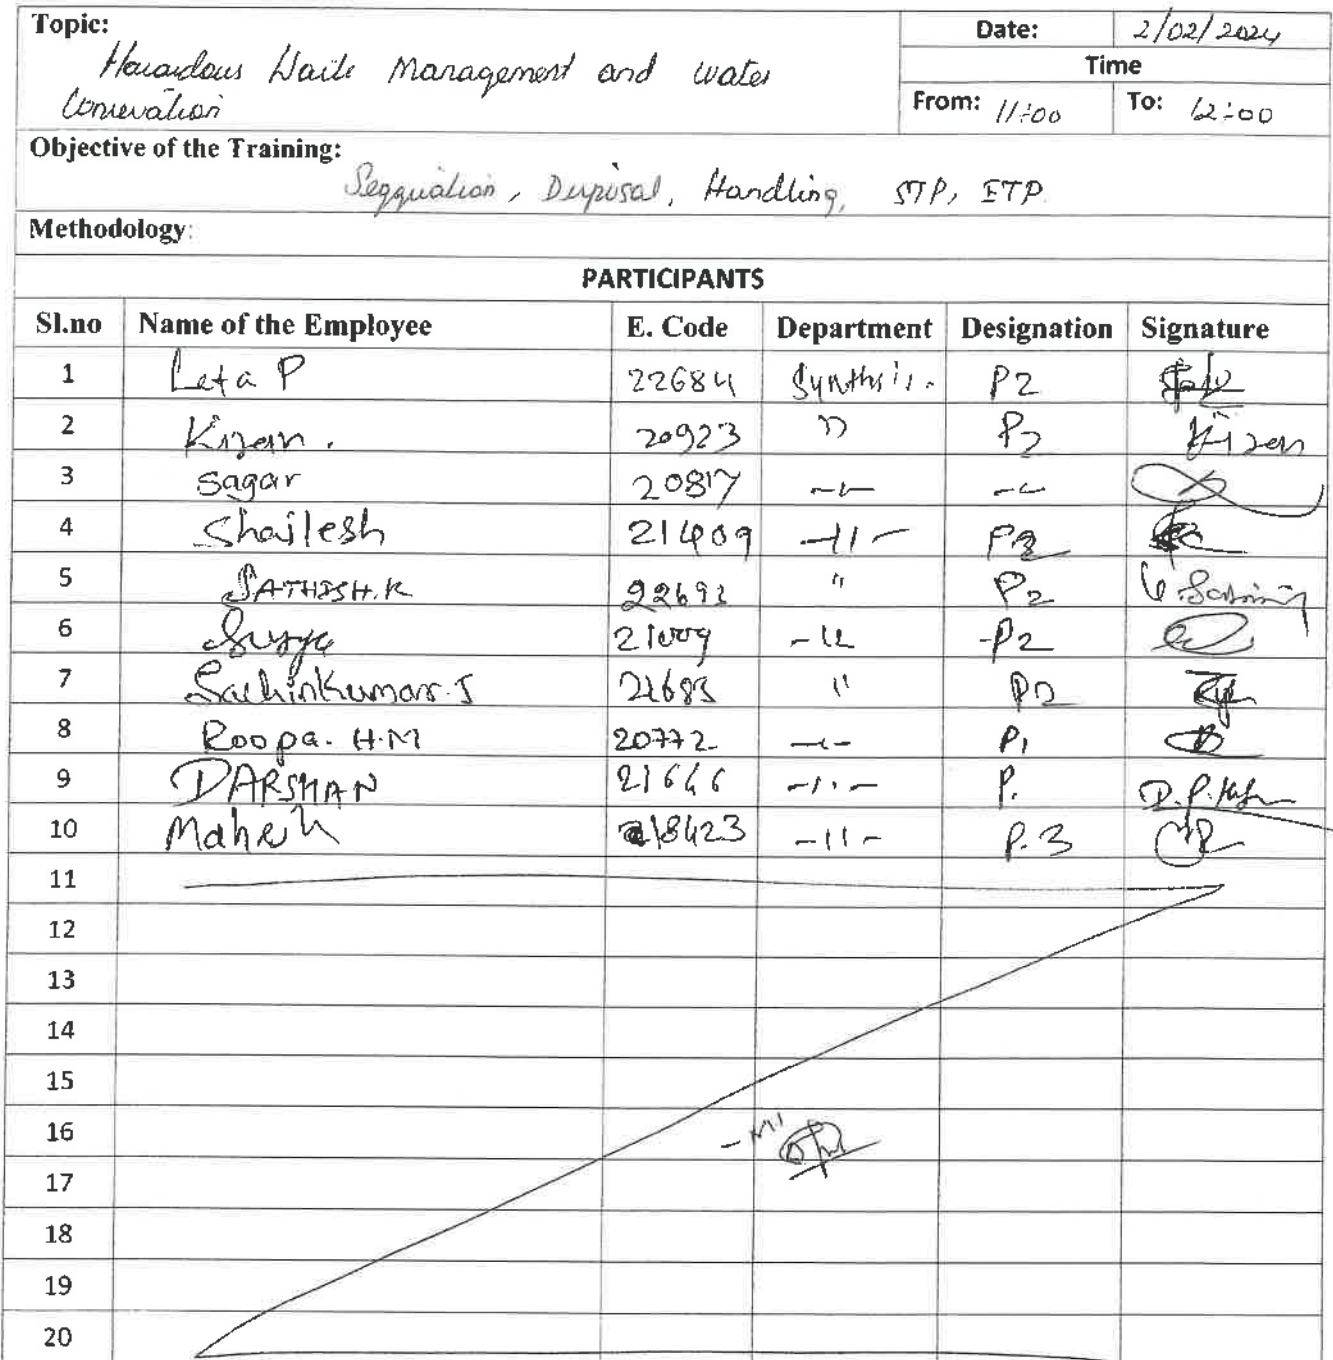 Topic:
Date: 2/02/2024
Hazardous Waste Management and water
Time
Conservation
From: 11:00 To: 12:00
Objective of the Training:
Seggregation, Disposal, Handling, STP, ETP.
Methodology:
PARTICIPANTS
Sl.no Name of the Employee E. Code Department Designation Signature
1 Leta P 22684 Synthsis. P2
2 Kiran. 20923 " P2 Kiran
3 Sagar 20817 -"- -"-
4 Shailesh 21409 -"-
5 SATHISH.K 22692 " P2
6 Surya 21009 -"- -P2
7 Sachinkumar.J 21683 " P2
8 Roopa. H.M 20772 -"- P1
9 DARSHAN 21646 -"- P.
10 Mahesh 218423 -"- P.3
11
12
13
14
15
16
17
18
19
20